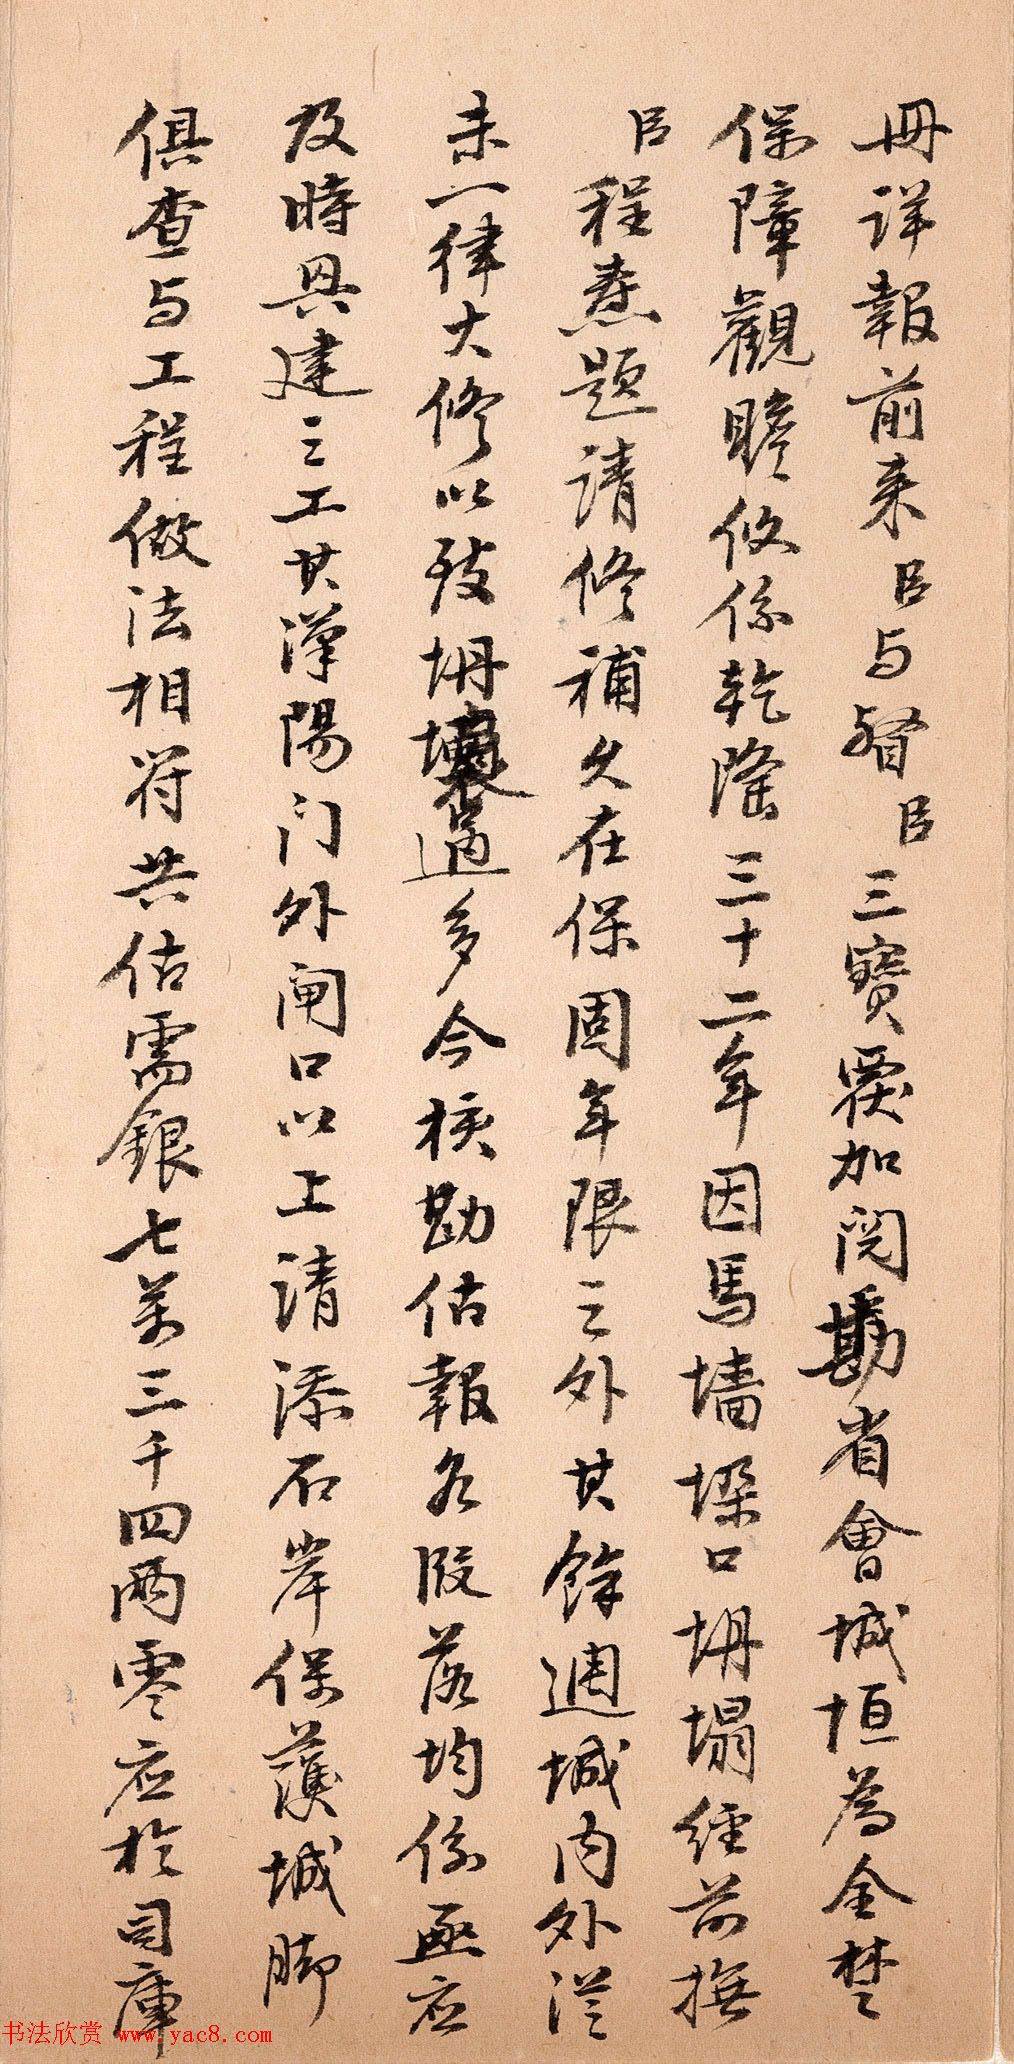 冊详報前来臣与督臣三寳覆加閱勘省會城垣為全楚
保障觀瞻攸係乾隆三十二年因馬墻垛口坍塌経前撫
臣程燾题请修補久在保固年限之外其餘週城内外從
未一律大修以致坍壞過多今核勘估報各段落均係亟应
及時興建之工其漢陽门外闸口以上請添石岸保護城脚
俱查与工程做法相符共估需銀七萬三千四兩零应於司庫
书法欣赏 www.yac8.com